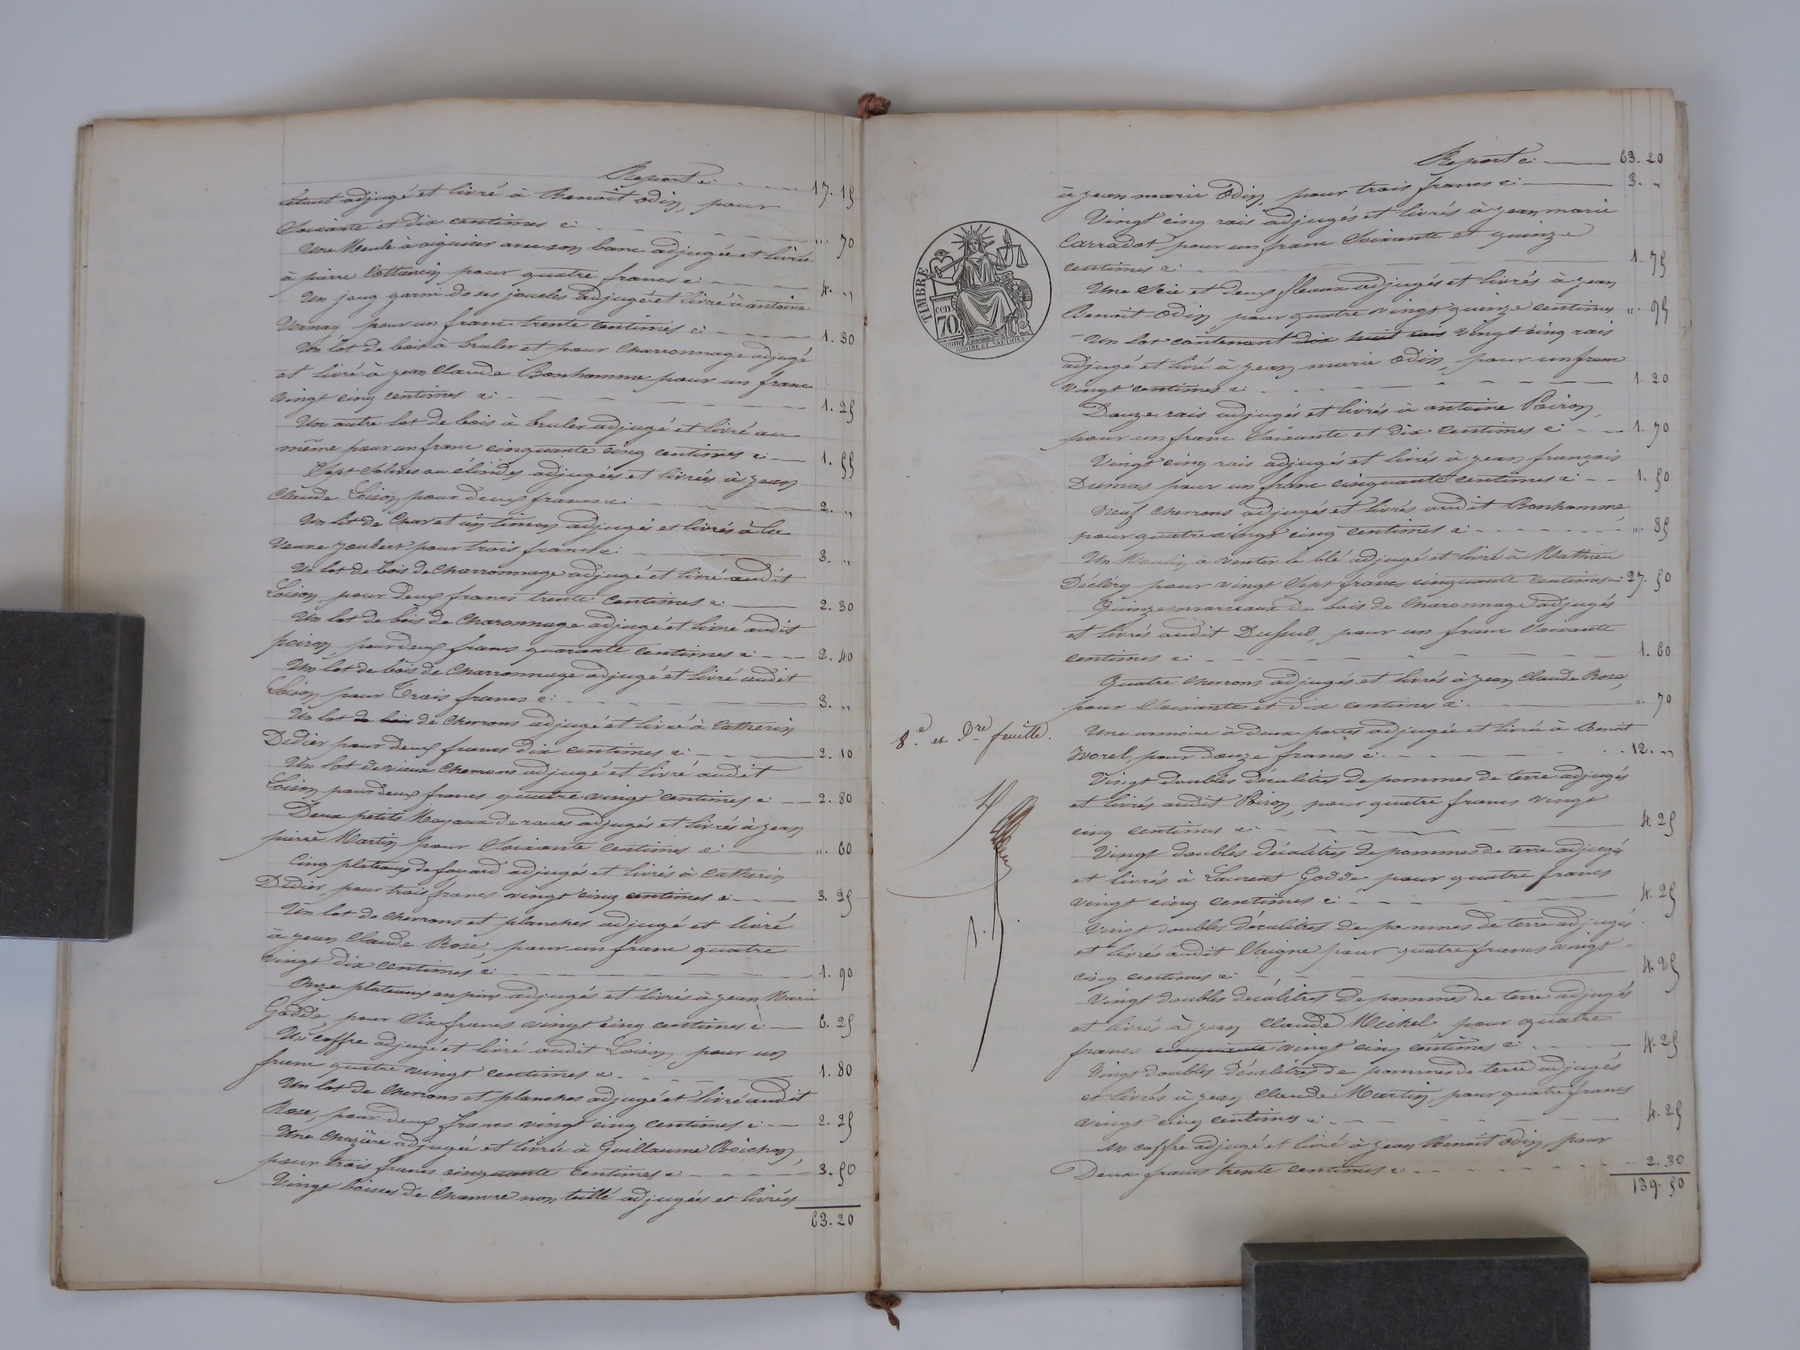 Report ci 17. 15
étant adjugé et livré à Benoît Odin, pour
Soixante et dix centimes ci ". 70
Une Meule à aiguiser avec son banc adjugée et livrée
à pierre Cottancin pour quatre francs ci 4. "
Un joug garni de ses joucles adjugé et livré à antoine
Vernay pour un franc trente centimes ci 1. 30
Un lot de bois à bruler et pour charronnage adjugé
et livré à jean Claude Bonhomme pour un franc
vingt cinq centimes ci 1. 25
Un autre lot de bois à bruler adjugé et livré au
même pour un franc cinquante cinq centimes ci 1. 55
Sept Solives ou élindes adjugées et livrées à jean
Claude Loison pour deux francs ci 2. "
Un lot de Char et un timon adjugés et livrés à la
Veuve joubert pour trois francs ci 3. "
Un lot de bois de charronnage adjugé et livré audit
Loison, pour deux francs trente centimes ci 2. 30
Un lot de bois de charonnage adjugé et livré audit
poiron, pour deux francs quarante centimes ci 2. 40
Un lot de bois de charronnage adjugé et livré audit
Loison pour trois francs ci 3. "
Un lot de bois de chevrons adjugé et livré à Catherin
Didier pour deux francs dix centimes ci 2. 10
Un lot de vieux chevrons adjugé et livré audit
Loison pour deux francs quatre vingt centimes ci 2. 80
Deux petits de raves adjugés et livrés à jean
pierre Martin pour soixante centimes ci ". 60
Cinq plateaux de fayard adjugés et livrés à Catherin
Didier, pour trois francs vingt cinq centimes ci 3. 25
Un lot de chevrons et planches adjugé et livré
à jean Claude Rose, pour un franc quatre
vingt dix centimes ci 1. 90
Onze plateaux en pins adjugés et livrés à jean Marie
Godde, pour six francs vingt cinq centimes ci 6. 25
Un coffre adjugé et livré audit Loison, pour un
franc quatre vingt centimes ci 1. 80
Un lot de chevrons et planches adjugé et livré audit
Rose, pour deux francs vingt cinq centimes ci 2. 25
Une adjugée et livrée à Guillaume Boichon,
pour trois francs cinquante centimes ci 3. 50
Vingt de chanvre non teillé adjugées et livrées
63. 20
Report ci 63. 20
à jean marie Odin, pour trois francs ci 3. "
Vingt cinq rais adjugés et livrés à jean marie
Carradot pour un franc soixante et quinze
centimes ci 1. 75
Une Scie et deux fléaux adjugés et livrés à jean
Benoit Odin pour quatre vingt quinze centimes ". 95
Un lot contenant dix huit rais vingt cinq rais
adjugé et livré à jean marie Odin, pour un franc
vingt centimes ci 1. 20
Douze rais adjugés et livrés à antoine Poiron,
pour un franc soixante et dix centimes ci 1. 70
Vingt cinq rais adjugés et livrés à jean françois
Dumas pour un franc cinquante centimes ci 1. 50
Neuf chevrons adjugés et livrés audit Bonhomme
pour quatre vingt cinq centimes ci ". 85
Un Moulin à venter le blé adjugé et livré à Mathieu
pour vingt sept francs cinquante centimes ci 27. 50
Quinze morceaux de bois de charonnage adjugés
et livrés audit pour un franc soixante
centimes ci 1. 60
Quatre chevrons adjugés et livrés à jean Claude Rose,
pour soixante et dix centimes ci " 70
Une armoire à deux portes adjugée et livrée à Benoit
pour douze francs ci 12. "
Vingt doubles décalitres de pommes de terre adjugés
et livrés audit Poiron, pour quatre francs vingt
cinq centimes ci 4. 25
Vingt doubles décalitres de pommes de terre adjugés
et livrés à Laurent Godde pour quatre francs
vingt cinq centimes ci 4. 25
Vingt doubles décalitres de pommes de terre adjugés
et livrés audit pour quatre francs vingt
cinq centimes ci 4. 25
Vingt doubles décalitres de pommes de terre adjugés
et livrés à jean Claude Michel pour quatre
francs cinquante vingt cinq centimes ci 4. 25
Vingt doubles décalitres de pommes de terre adjugés
et livrés à jean Claude Martin, pour quatre francs
vingt cinq centimes ci 4. 25
un coffre adjugé et livré à jean Benoit Odin, pour
Deux francs trente centimes ci 2. 30
139. 50
TIMBRE
cen
70
8.e et dre feuille.